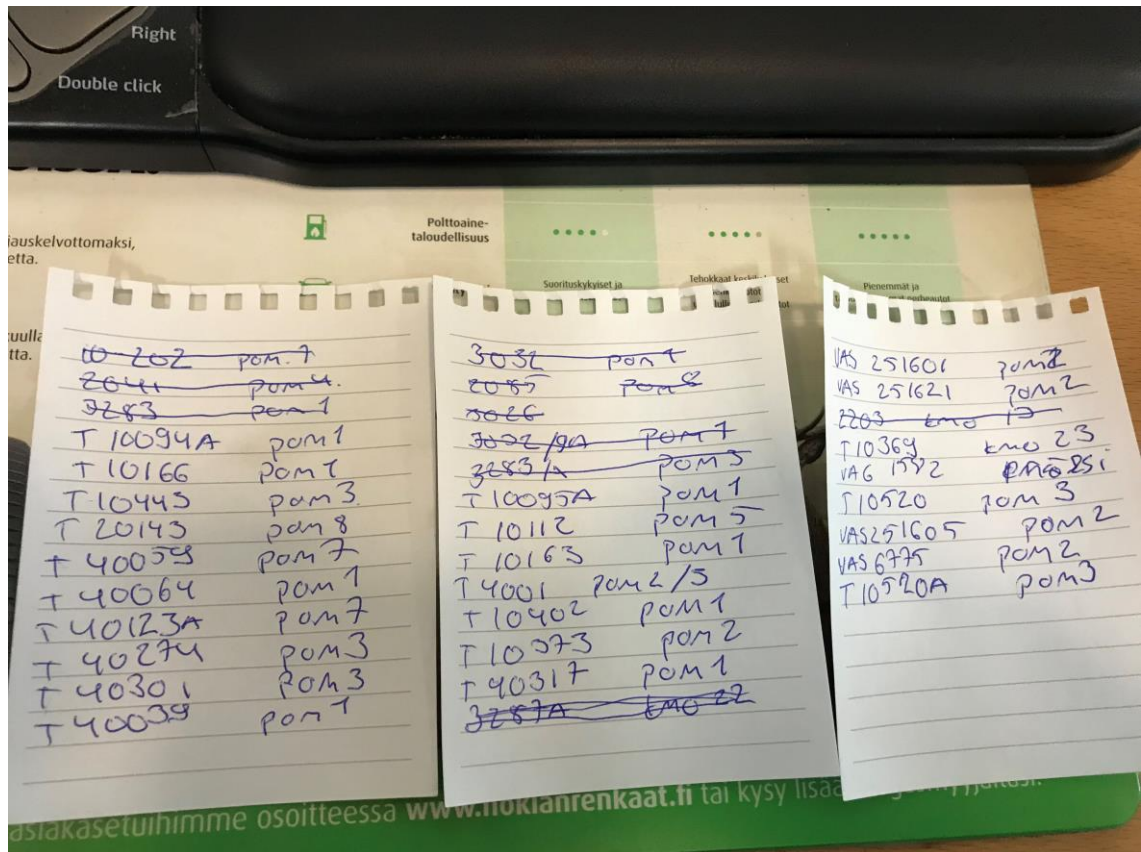 Right
Double click
Polttoaine-
taloudellisuus
iauskelvottomaksi,
etta.
Suorituskykyiset ja
Tehokkaat
Pienemmät ja
tta.
10-202 pom. 7
2041 pom 4.
3283 pom 1
T 10094A pom 1
T 10166 pom 1
T 10443 pom 3.
T 20143 pom 8
T 40059 pom 7
T 40064 pom 1
T 40123A pom 7
T 40274 pom 3
T 40301 pom 3
T 40039 pom 1
3032 pom 1
2085 pom 8
3026
pom 7
3283/A pom 3
T 10095A pom 1
T 10112 pom 5
T 10163 pom 1
T 4001 pom 2/5
T 10402 pom 1
T 10373 pom 2
T 40317 pom 1
3287A kmo 22
VAS 251601 pom 2
VAS 251621 pom 2
2203 kmo 17
T10369 kmo 23
VAG
T10520 pom 3
VAS251605 pom 2
VAS 6775 pom 2
T10520A pom3
asiakasetuihimme osoitteessa www.nokianrenkaat.fi tai kysy lisää